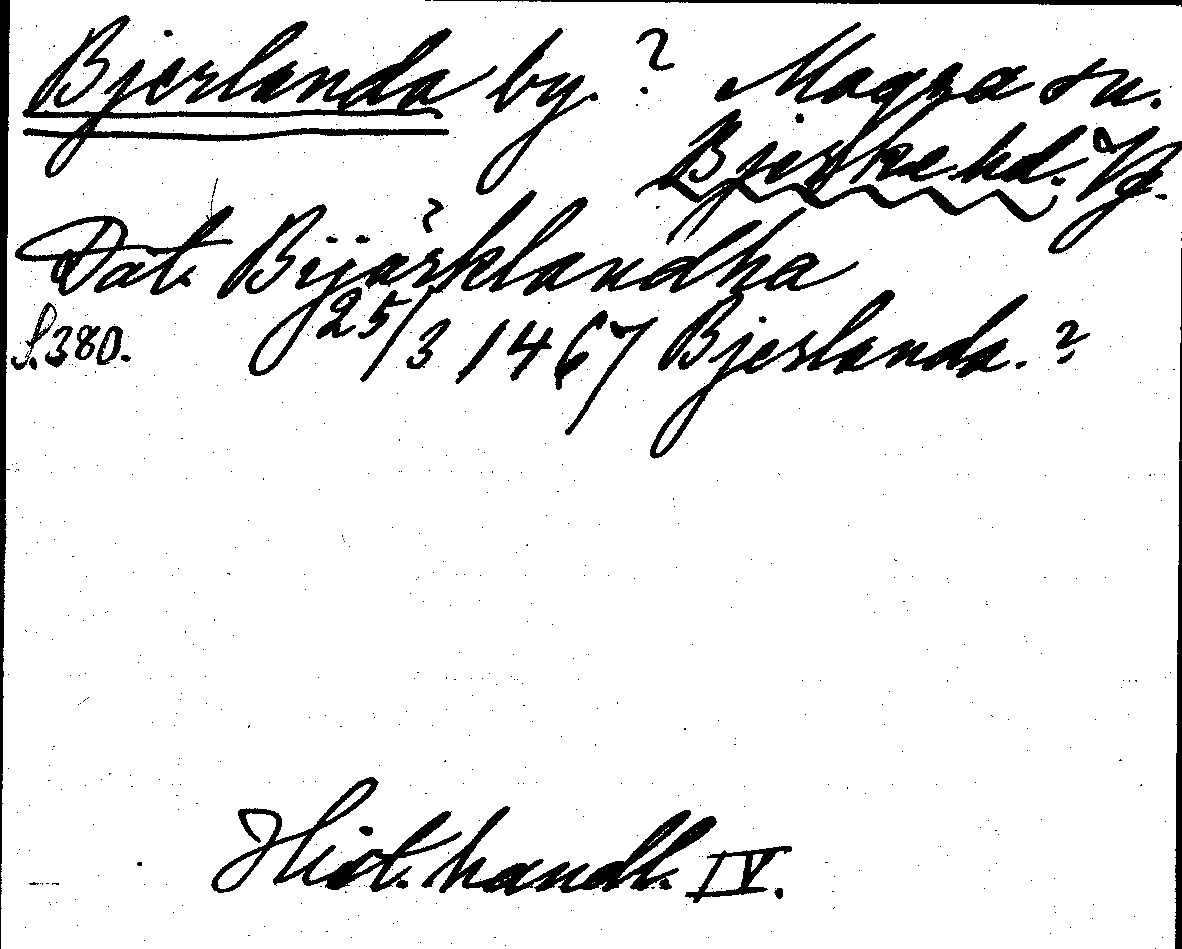 Bjerlanda by.? Magra sn.
Bjerke hd. Vg.
Dat. Bijärklandha
S. 380. 25/3 1467 Bjerlanda.?
Hist. handl. IV.